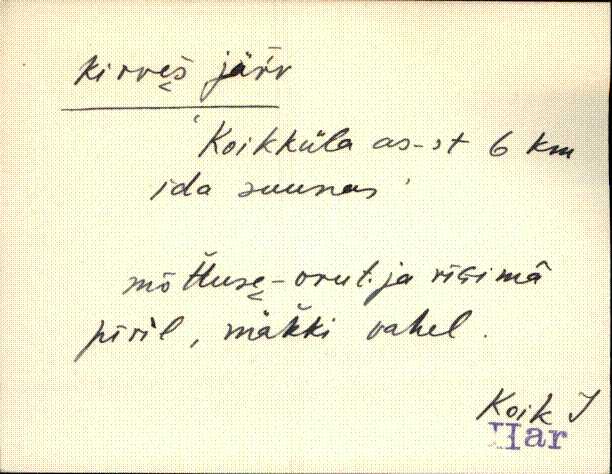 kirvès järv
'Koikküla as-st 6 km
ida suunas'
mõttuse-orut ja risimä
piril, mäkki vahel.
Koik J
Har